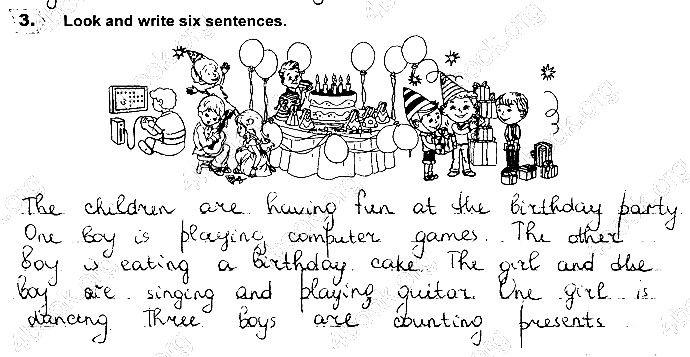 3. Look and write six sentences.
The children are having fun at the birthday party.
One boy is playing computer games. The other
boy is eating a birthday cake. The girl and the
boy are singing and playing guitar. One girl is
dancing. Three boys are counting presents